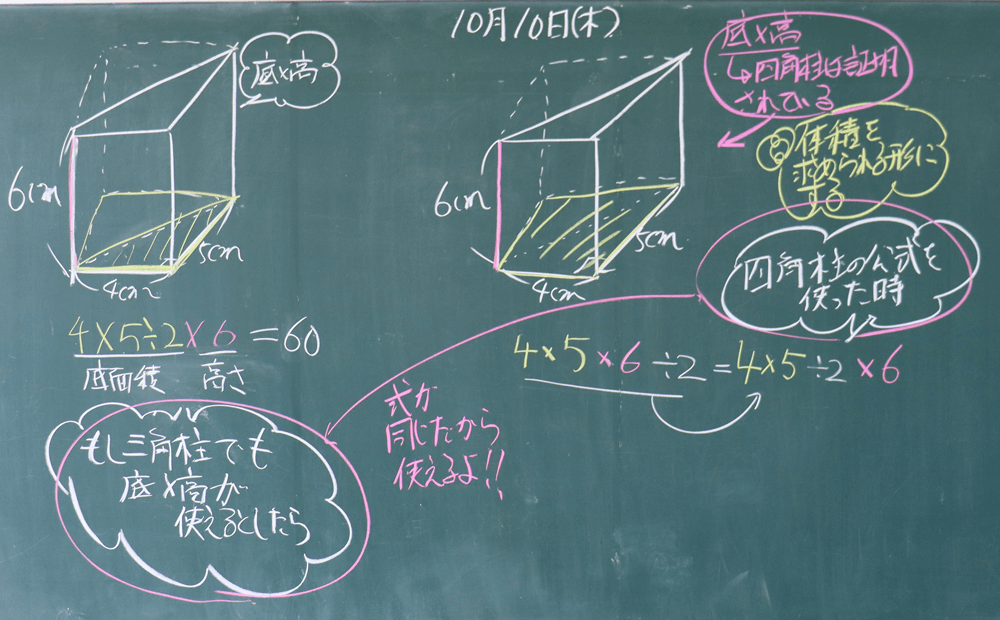 10月10日(木)
底×高
6cm
5cm
4cm
4×5÷2×6=60
底面積 高さ
もし三角柱でも
底×高が
使えるとしたら
式が
同じだから
使えるよ!!
底×高
↳四角柱は証明
されている
体積を
求められる形に
する
6cm
5cm
4cm
四角柱の公式を
使った時
4×5×6÷2=4×5÷2×6